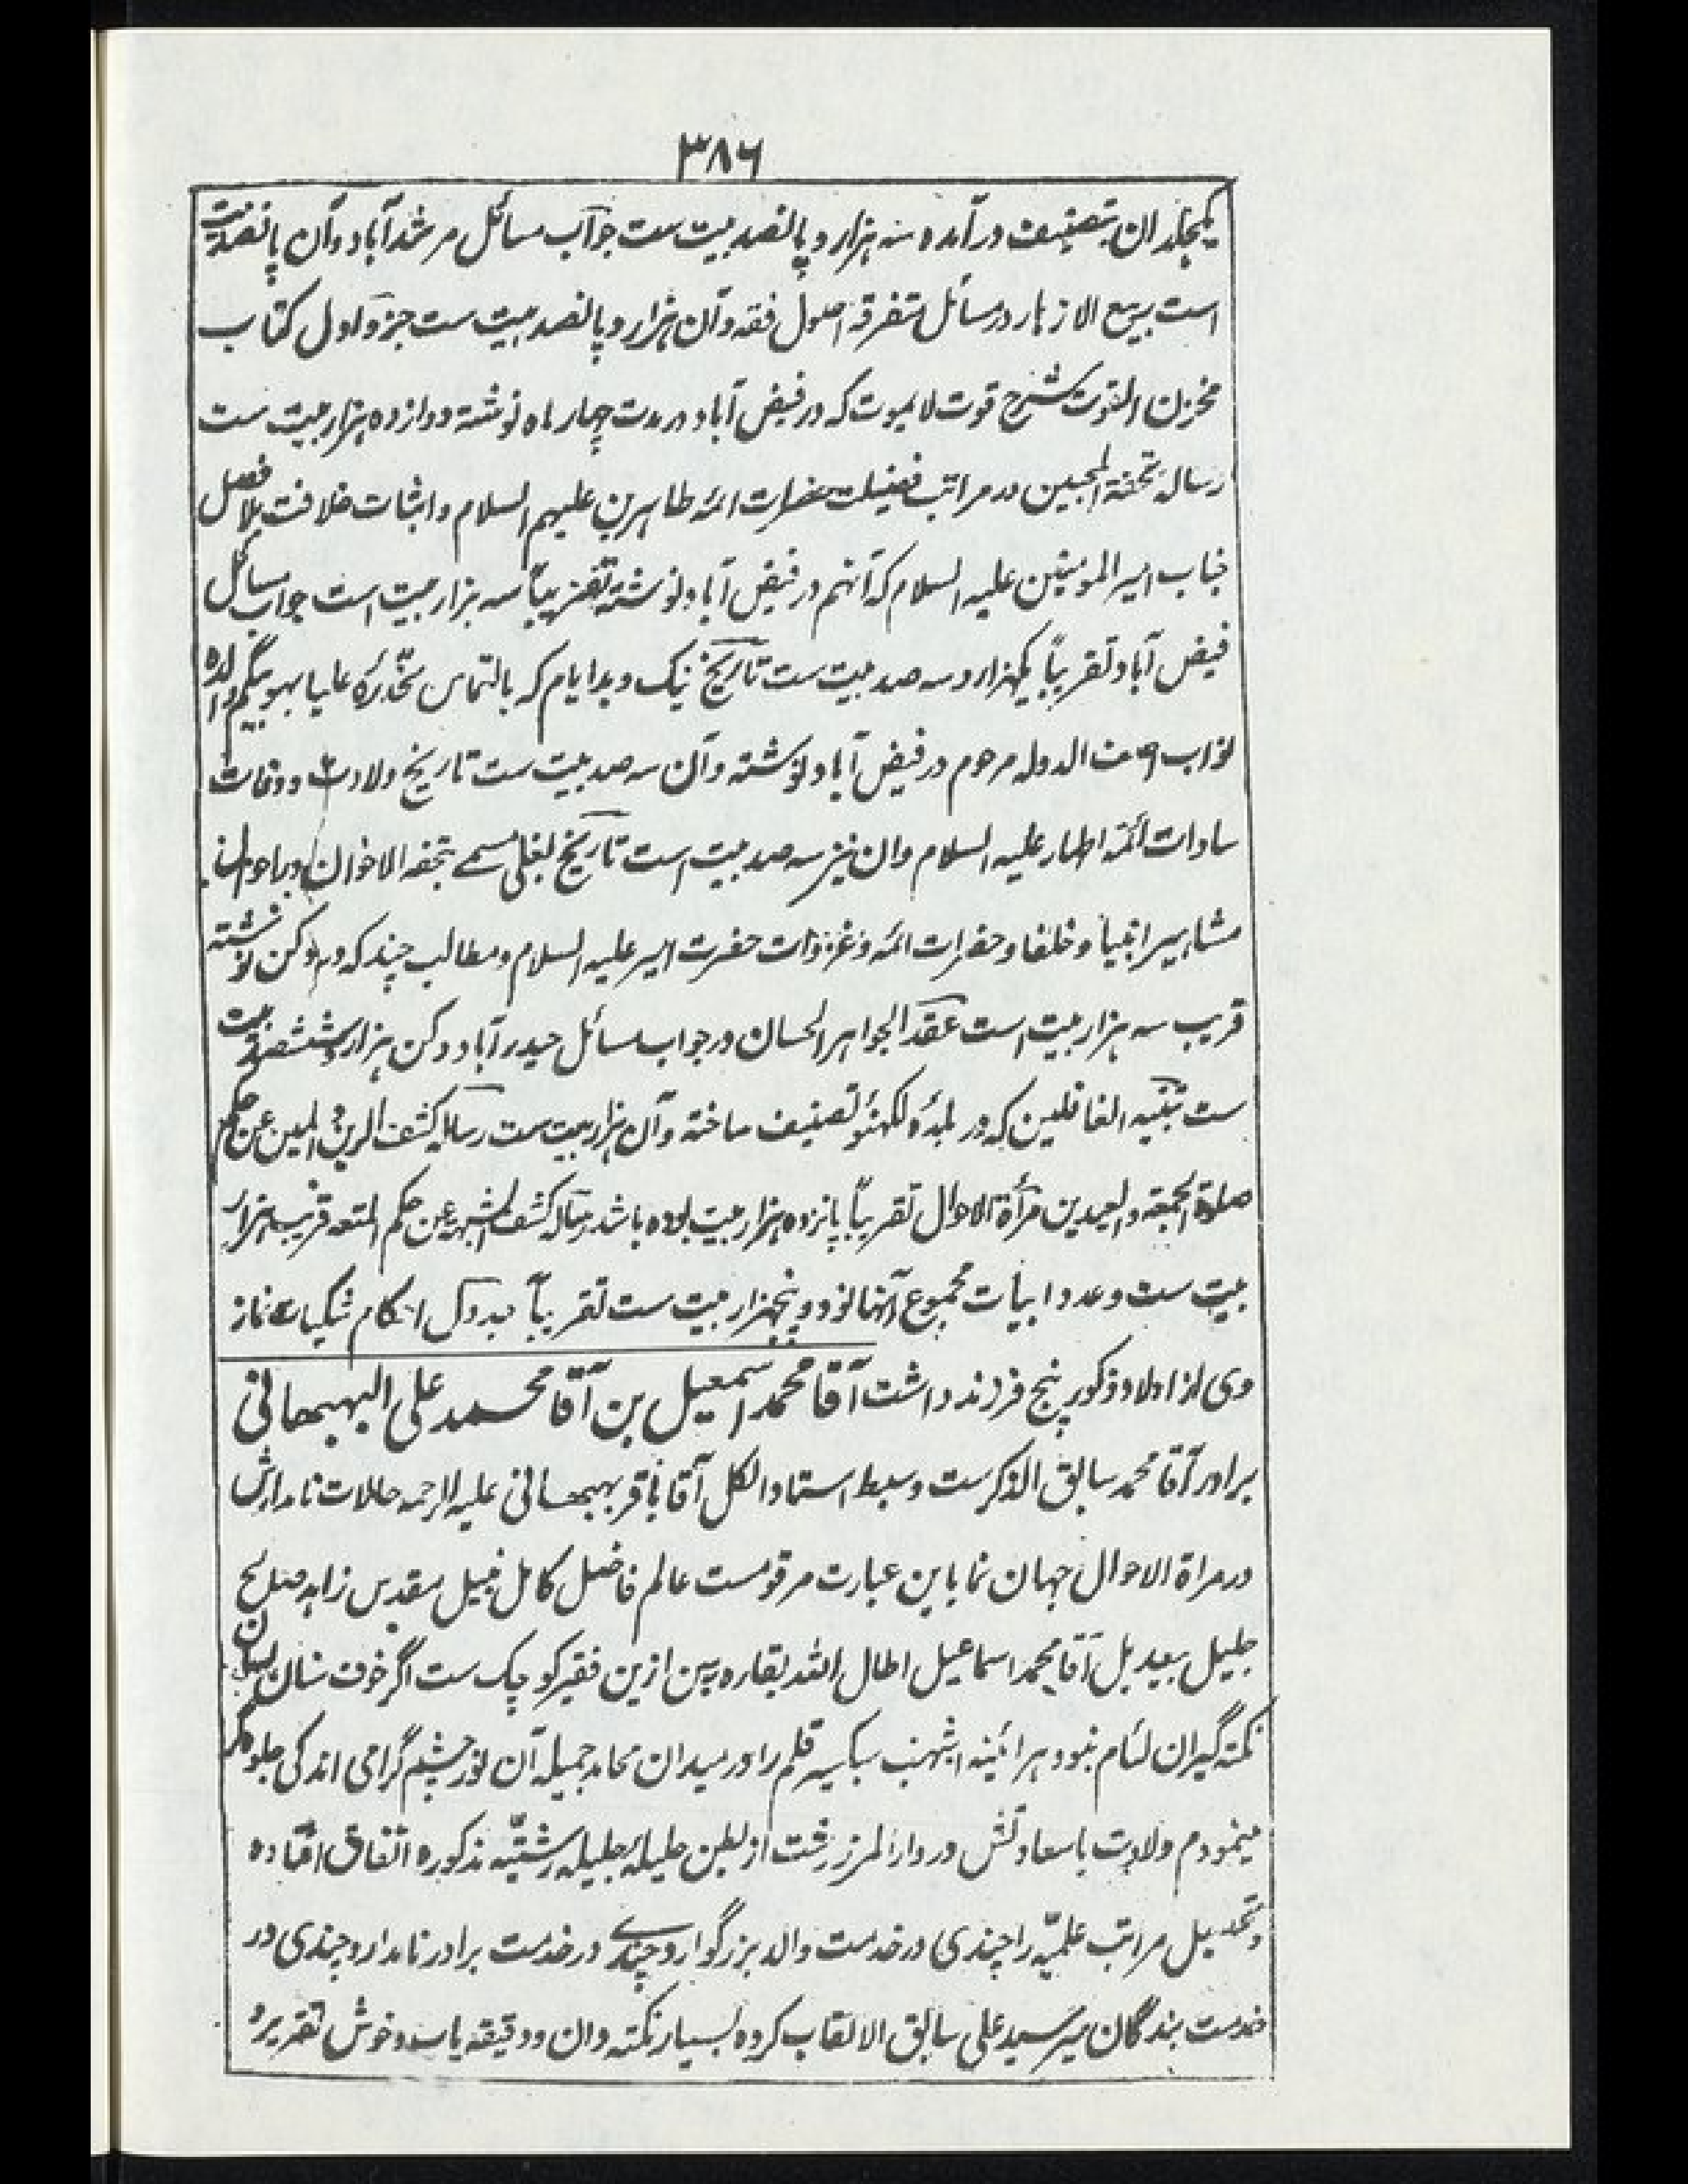 ٣٨٦
یکجلد ان بتصنیف درآمده سه هزار و پانصد بیت ست جواب مسائل مرشدآباد و آن پانصد بیت
است ربیع الازهار در مسائل متفرقه اصول فقه و آن هزار و پانصد بیت ست جزو اول کتاب
مخزن القوت شرح قوت لایموت که در فیض آباد در مدت چهار ماه نوشته دوازده هزار بیت ست
رساله تحفة المحبین در مراتب فضیلت حضرات ائمه طاهرین علیهم السلام و اثبات خلافت بلا فصل
جناب امیر المومنین علیه السلام که آنهم در فیض آباد نوشته تقریباً سه هزار بیت است جواب مسائل
فیض آباد تقریباً یکهزار و سه صد بیت ست تاریخ نیک و بد ایام که بالتماس مخدّرۀ علیا بهو بیگم والده
نواب آصف الدوله مرحوم در فیض آباد نوشته و آن سه صد بیت ست تاریخ ولادت و وفات
سادات ائمه اطهار علیه السلام و ان نیز سه صد بیت است تاریخ بغلی مسمے بتحفه الاخوان در احوال
مشاهیر انبیا و خلفا و حضرات ائمه و غزوات حضرت امیر علیه السلام و مطالب چند که در دکن نوشته
قریب سه هزار بیت است عقد الجواهر الحسان در جواب مسائل حیدرآباد دکن هزار و ششصد بیت
ست تنبیه الغافلین که در بلدۀ لکهنؤ تصنیف ساخته و آن هزار بیت ست رساله کشف الرین و المین عن حکم
صلوة الجمعة و العیدین مرأة الاحوال تقریباً پانزده هزار بیت بوده باشد رساله کشف الشبهه عن حکم المتعه قریب هزار
بیت ست و عدد ابیات مجموع آنها نود و پنجهزار بیت ست تقریباً جدول احکام شکیات نماز
وی از اولاد ذکور پنج فرزند داشت آقا محمد اسمعیل بن آقا محمد علی البهبهانی
برادر آقا محمد سابق الذکر ست و سبط استاد الکل آقا باقر بهبهانی علیه الرحمه حالات نامدارش
در مراة الاحوال جهان نما باین عبارت مرقومست عالم فاضل کامل نبیل مقدس زاهد صالح
جلیل بیعدیل آقا محمد اسماعیل اطال الله بقاره پس ازین فقیر کوچک ست اگر خوف سنان لسان
نکته گیران لئام نبود هر ائینه اشهب سبکسیر قلم را در میدان محامد جمیله آن نور چشم گرامی اندکی جلوه گر
مینمودم ولادت باسعادتش در دار المرز رشت از بطن حلیله جلیله رشتیّه مذکوره اتفاق افتاده
و تحصیل مراتب علمیّه را چندی در خدمت والد بزرگوار و چندے در خدمت برادر نامدار و چندی در
خدمت بندگان میر سید علی سابق الالقاب کرده بسیار نکته دان و دقیقه یاب و خوش تقریر و